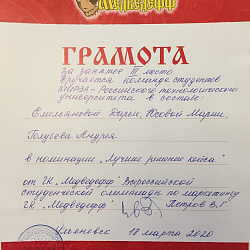 Медведефф
ГРАМОТА
За занятое III место
вручается команде студентов
МИРЭА - Российского технологического
университета в составе:
Емельяновой Дарьи, Носовой Марии,
Голубева Андрея
в номинации „Лучшее решение кейса"
от ГК „Медведефф" Всероссийской
студенческой олимпиады по маркетингу
ГК „Медведефф" Петров В.Г
Ульяновск 18 марта 2020